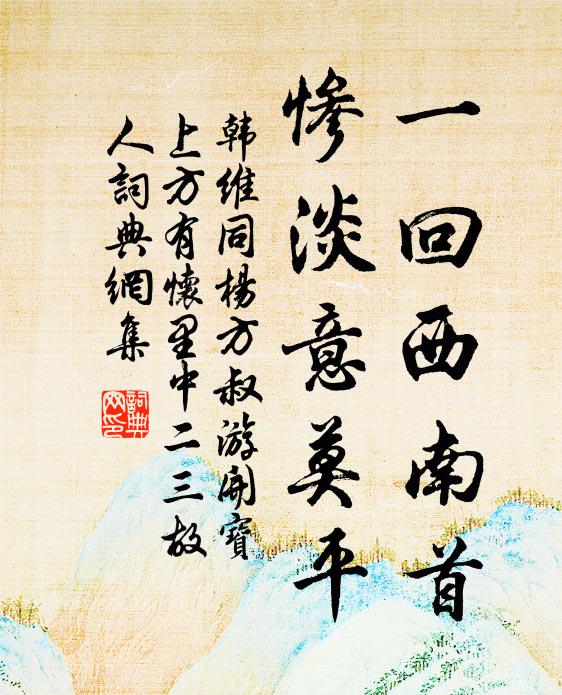 一回西南首
惨淡意莫平
韩维同楊方叔游開寶
上方有懷里中二三故
人詞典網集
詞典
网印